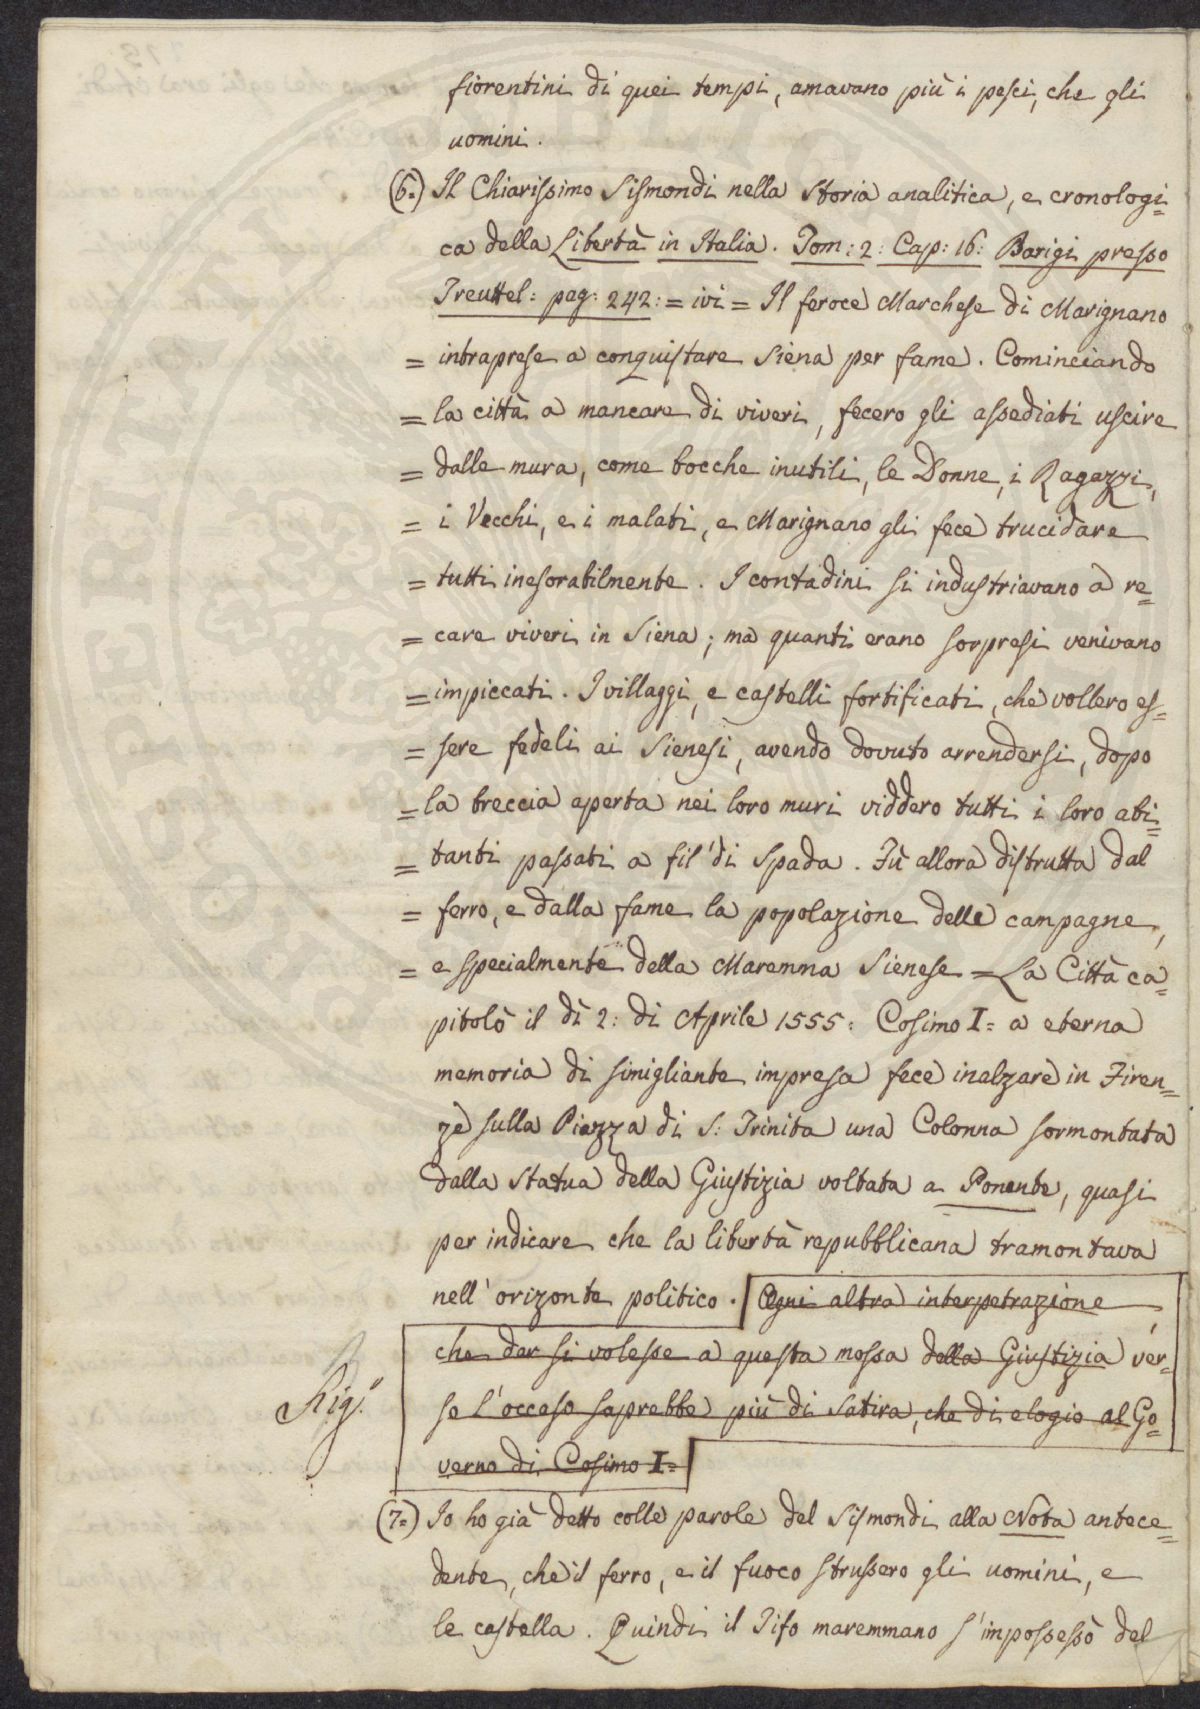 fiorentini di quei tempi, amavano più i pesci, che gli
uomini.
(6=) Il Chiarissimo Sismondi nella Storia analitica, e cronologi=
ca della Libertà in Italia. Tom: 2: Cap: 16: Parigi presso
Treuttel: pag: 242: = ivi = Il feroce Marchese di Marignano
= intraprese a conquistare Siena per fame. Cominciando
= la città a mancare di viveri, fecero gli assediati uscire
= dalle mura, come bocche inutili, le Donne, i Ragazzi,
= i Vecchi, e i malati, e Marignano gli fece trucidare
= tutti inesorabilmente. I contadini si industriavano a re=
= care viveri in Siena; ma quanti erano sorpresi venivano
= impiccati. I villaggi, e castelli fortificati, che vollero es=
= sere fedeli ai Sienesi, avendo dovuto arrendersi, dopo
= la breccia aperta nei loro muri viddero tutti i loro abi=
= tanti passati a fil'di Spada. Fù allora distrutta dal
= ferro, e dalla fame la popolazione delle campagne,
= e specialmente della Maremma Sienese = La Città ca=
pitolò il dì 2: di Aprile 1555: Cosimo I= a eterna
memoria di simigliante impresa fece inalzare in Firen=
ze sulla Piazza di S: Trinita una Colonna sormontata
dalla Statua della Giustizia voltata a Ponente, quasi
per indicare che la libertà repubblicana tramontava
nell'orizonte politico. Ogni altra interpetrazione,
che dar si volesse a questa mossa della Giustizia ver=
so l'occaso saprebbe più di Satira, che di elogio al Go=
verno di Cosimo I=
(7=) Io ho già detto colle parole del Sismondi alla Nota antece=
dente, che il ferro, e il fuoco strussero gli uomini, e
le castella. Quindi il Tifo maremmano s'impossessò del